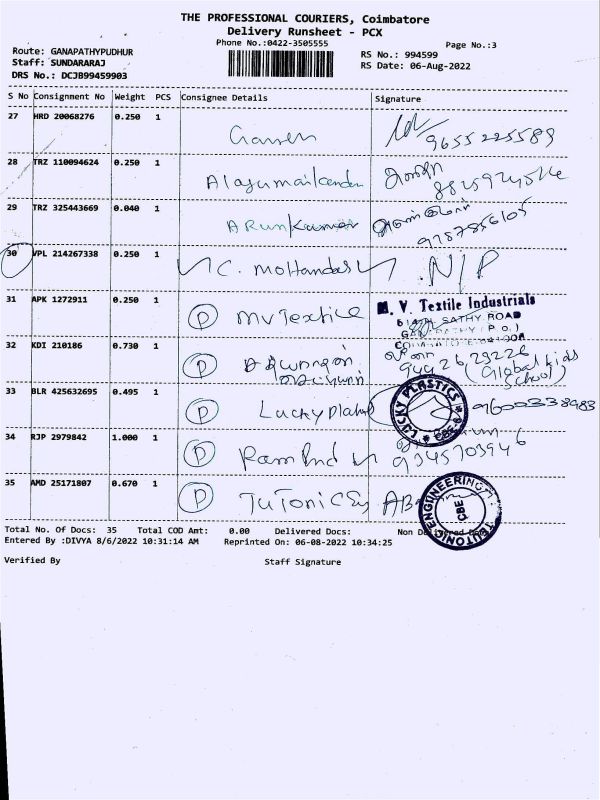 THE PROFESSIONAL COURIERS, Coimbatore
Delivery Runsheet - PCX
Phone No.:0422-3505555
Page No.:3
Route: GANAPATHYPUDHUR
Staff: SUNDARARAJ
DRS No.: DCJB99459903
RS No.: 994599
RS Date: 06-Aug-2022
S No Consignment No Weight PCS Consignee Details Signature
27 HRD 20068276 0.250 1
9655225589
28 TRZ 110094624 0.250 1
29 TRZ 325443669 0.040 1 ARunkumar
9787856105
30 VPL 214267338 0.250 1 C. Mohandas N/P
31 APK 1272911 0.250 1 P MV Textile
M. V. Textile Industrials
SATHY ROAD
(P.O.)
32 KDI 210186 0.730 1 P
9442629226
(Global kids
School)
33 BLR 425632695 0.495 1 P Lucky
LUCKY PLASTICS CBE-6
9600338983
34 RJP 2979842 1.000 1 P
9345703946
35 AMD 25171807 0.670 1 P
ENGINEERING CBE
Total No. Of Docs: 35 Total COD Amt: 0.00 Delivered Docs: Non Delivered
Entered By :DIVYA 8/6/2022 10:31:14 AM Reprinted On: 06-08-2022 10:34:25
Verified By Staff Signature